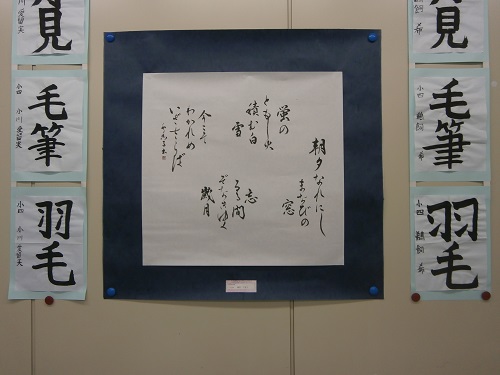 朝夕なれにし
まなびの
窓
蛍の
ともし火
積む白
雪
忘
るゝ間
ぞなきゆく
歳月
今こそ
わかれめ
いざさらば
見
毛筆
小四
希
羽毛
小四
希
見
毛筆
小四 小川
羽毛
小四 小川